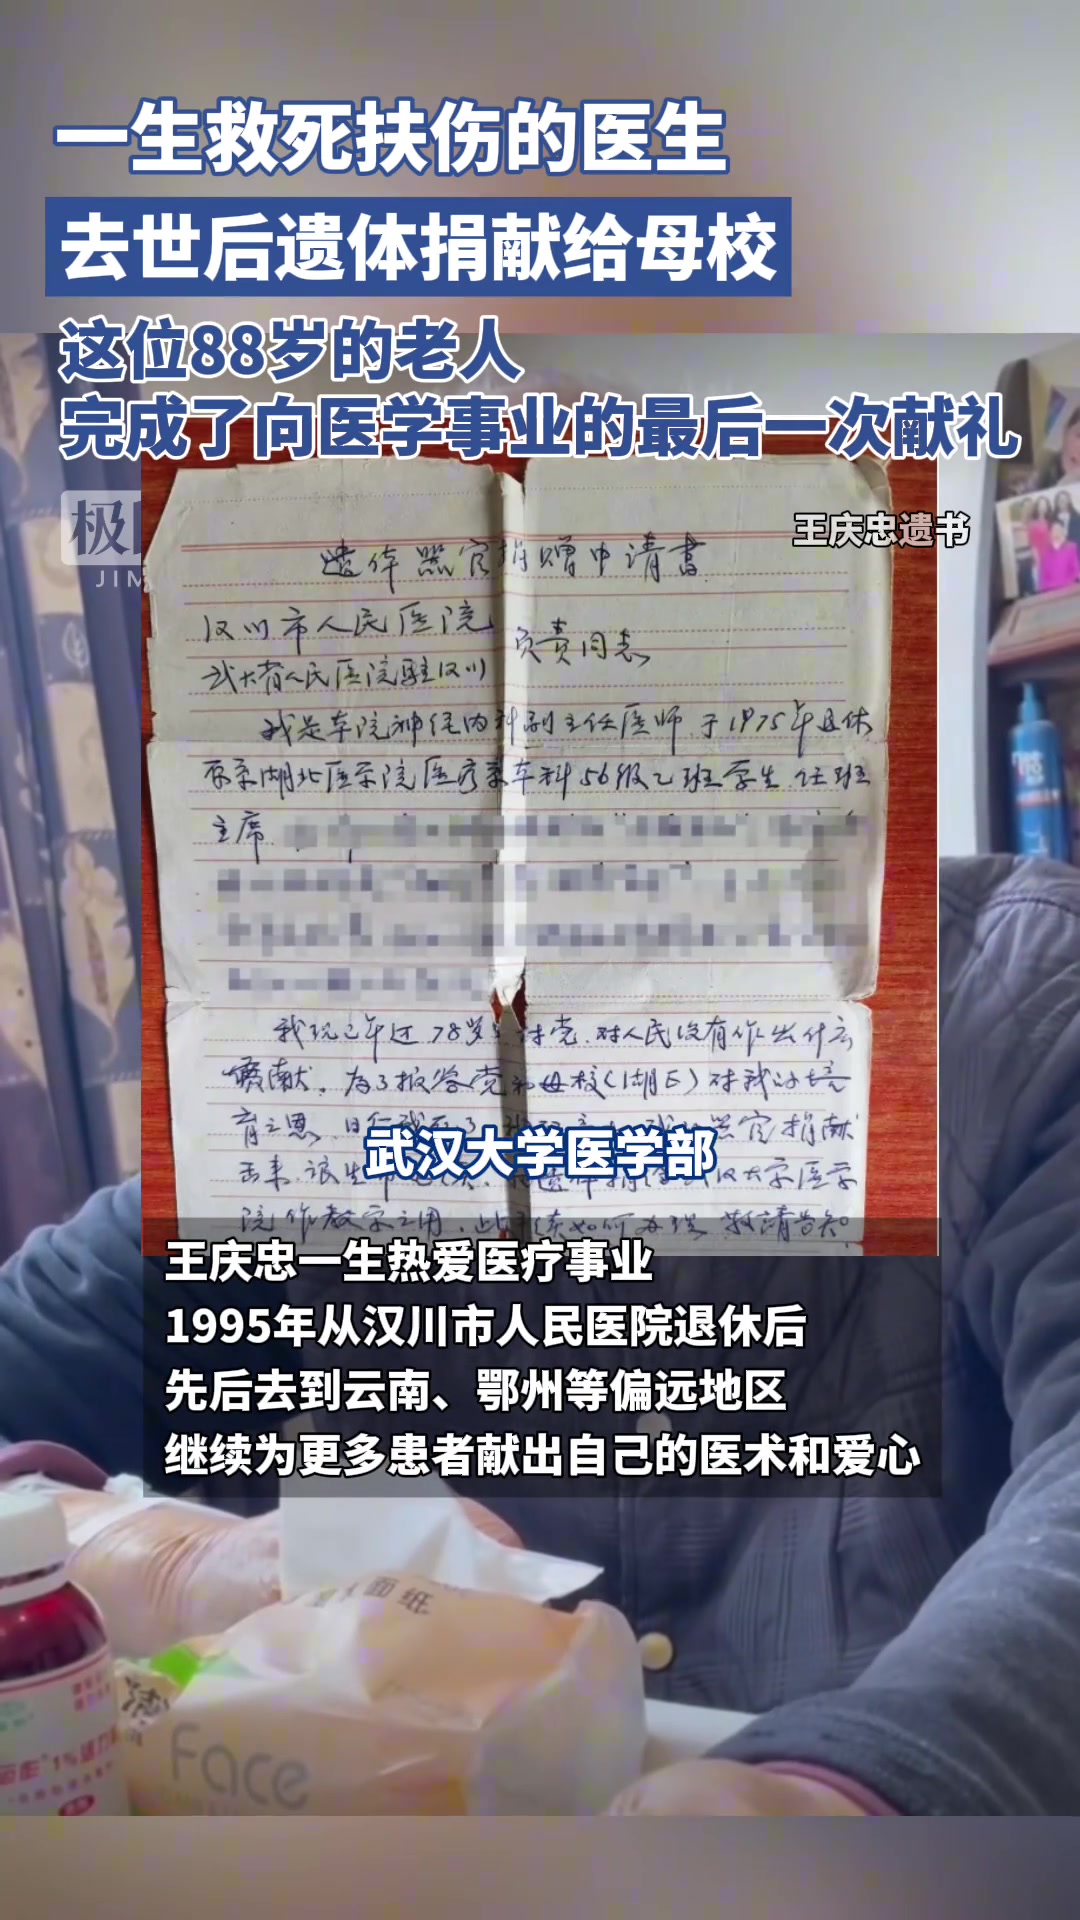 一生救死扶伤的医生
去世后遗体捐献给母校
这位88岁的老人
完成了向医学事业的最后一次献礼
极
JIM
王庆忠遗书
遗体器官捐赠申请书
汉川市人民医院
负责同志
武大省人民医院驻汉川
我是本院神经内科副主任医师,于1975年退休
原系湖北医学院医疗系本科56级乙班学生,任班
主席
我现已年近78岁 对党、对人民没有作出什么
贡献。为了报答党和母校(湖医)对我的培
育之恩、
器官捐献
武汉大学医学
院作教学之用,此手续如何办理 敬请告知
武汉大学医学部
王庆忠一生热爱医疗事业
1995年从汉川市人民医院退休后
先后去到云南、鄂州等偏远地区
继续为更多患者献出自己的医术和爱心
面纸
洁
Face
1%